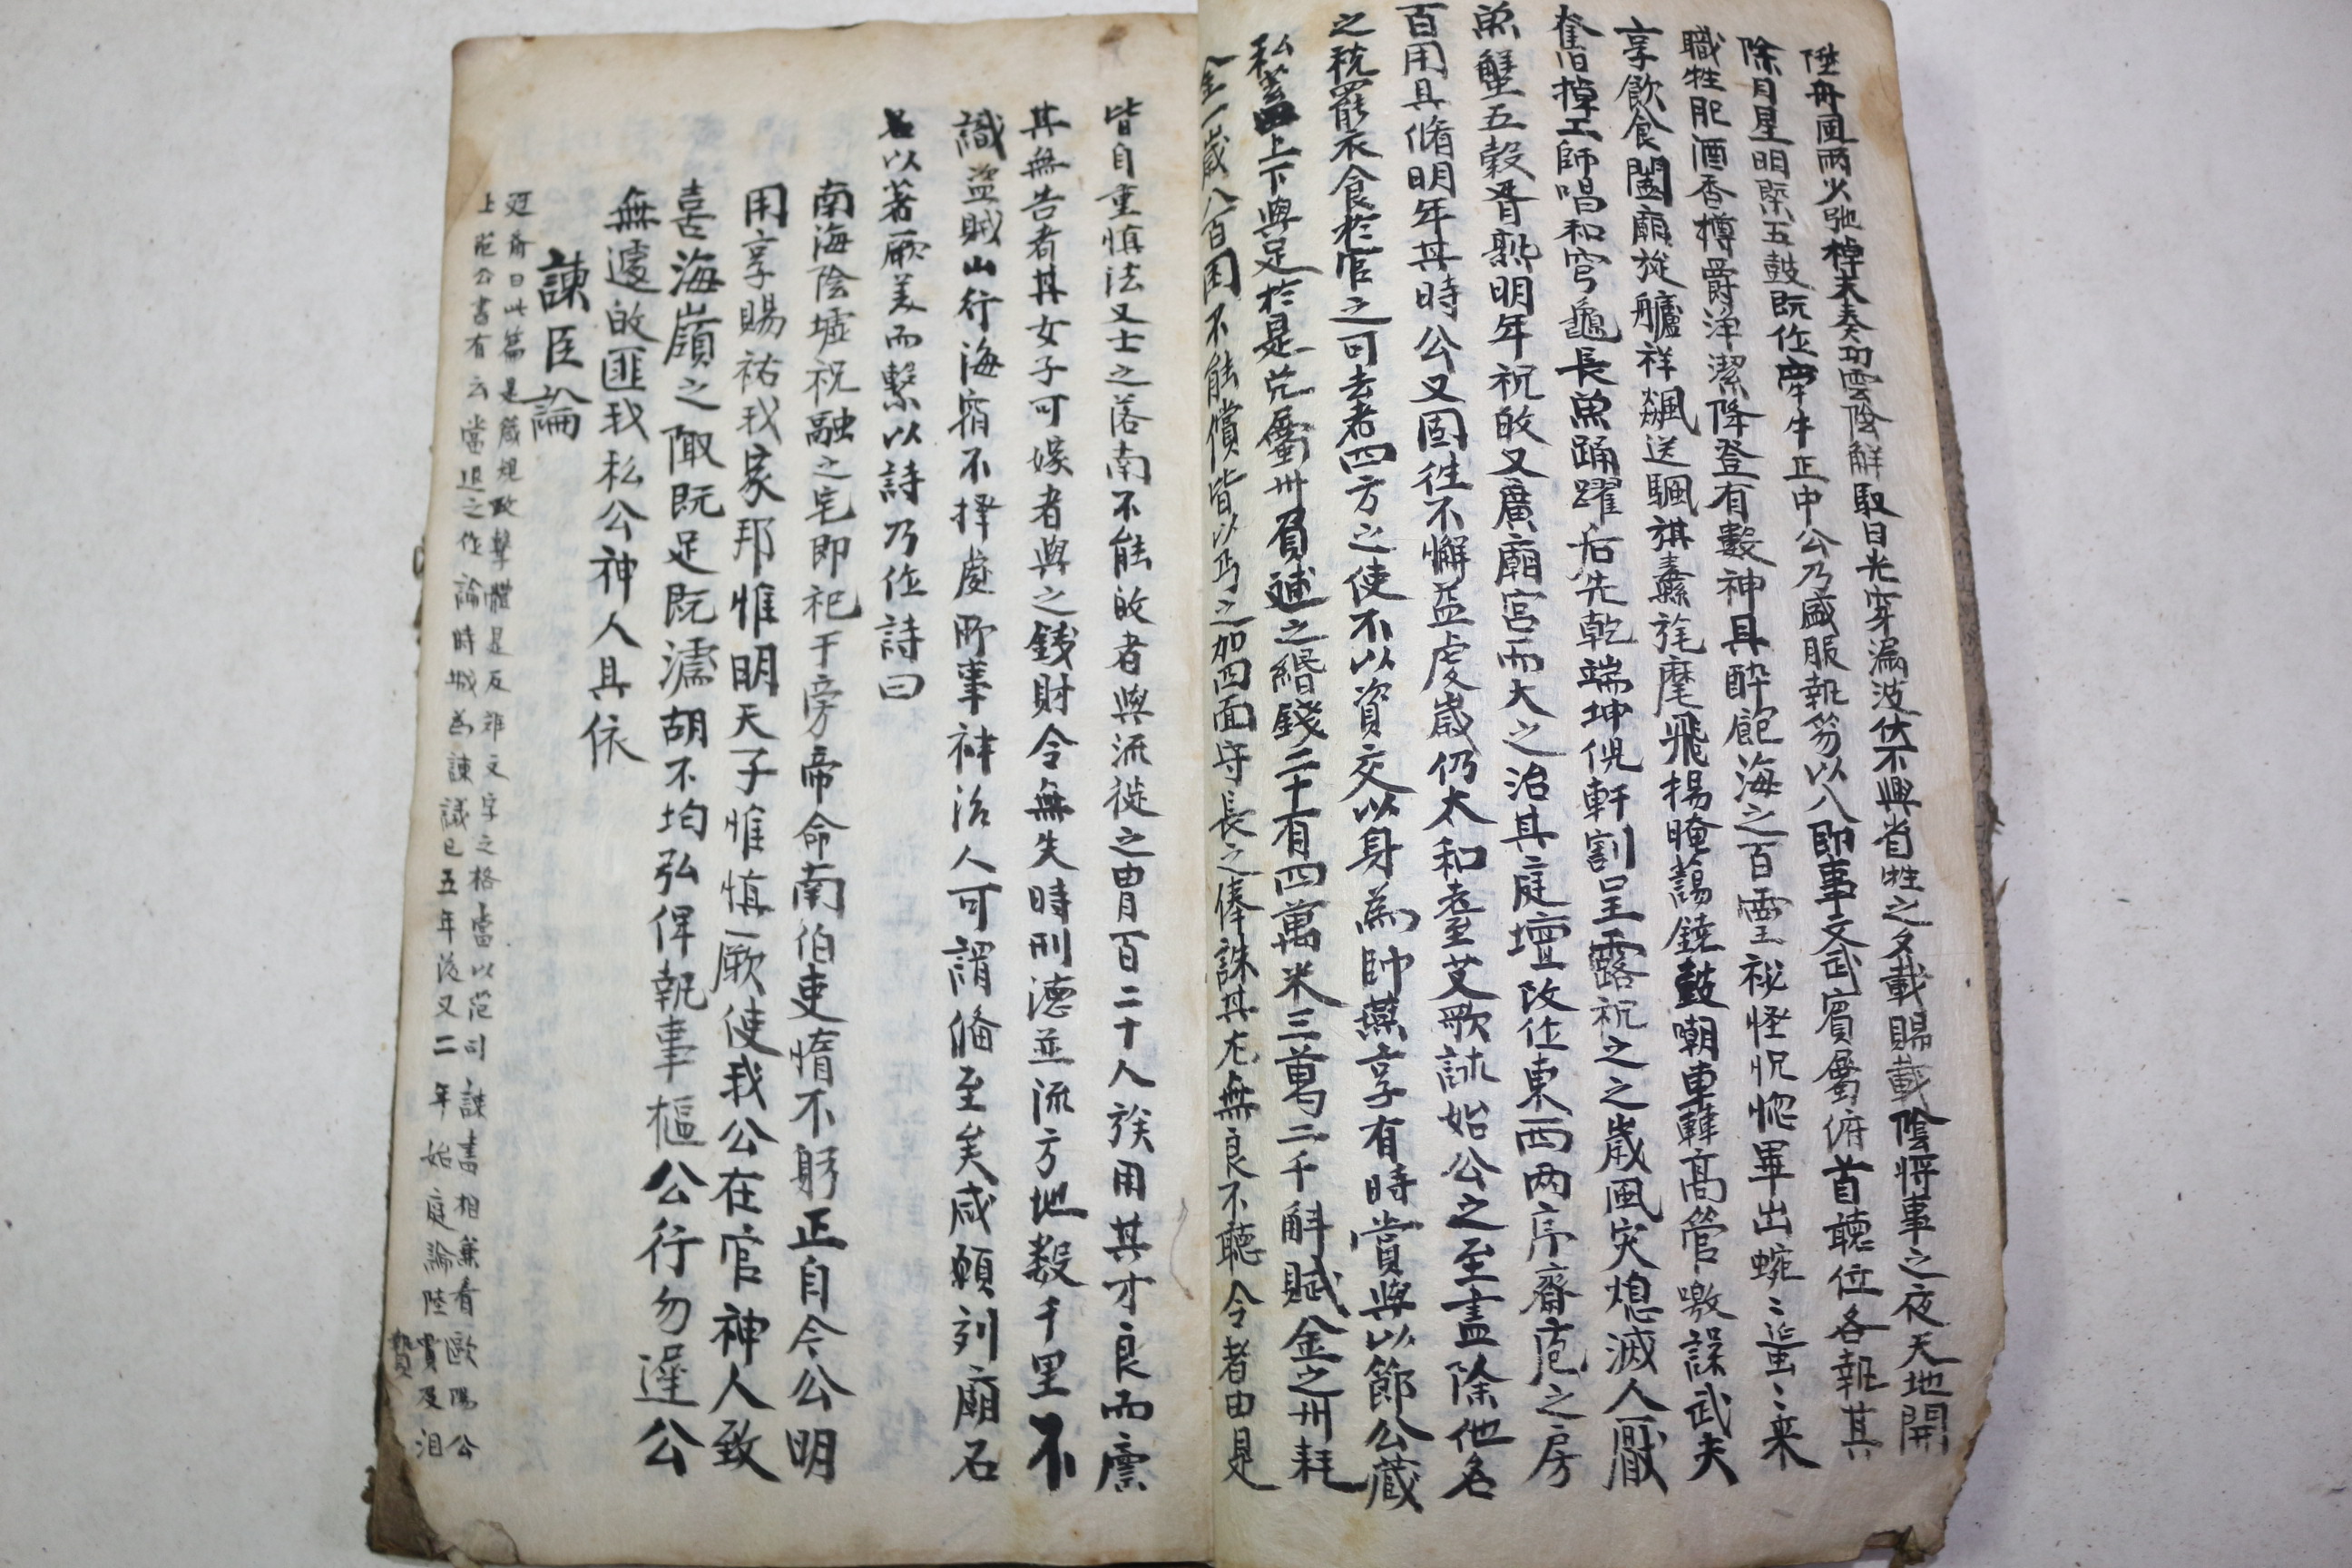 陞舟風雨少弛棹夫奏功雲陰解駁日光穿漏波伏不興省牲之夕載暘載陰將事之夜天地開
除月星明槩五鼓既作牽牛正中公乃盛服執笏以入卽事文武賓屬俯首聽位各執其
職牲肥酒香樽爵淨潔降登有數神具醉飽海之百靈祕怪恍惚畢出蜿〻蜒〻來
享飲食闔廟旋艫祥飇送颿旗纛旄麾飛揚晻藹鐃鼓嘲轟高管噭譟武夫
奮棹工師唱和穹龜長魚踊躍後先乾端坤倪軒豁呈露祀之之歲風災熄滅人厭
魚蟹五穀胥熟明年祀敀又廣廟宮而大之治其庭壇改作東西兩序齋庖之房
百用具脩明年其時公又固徃不懈益虔歲仍大和耋艾歌詠始公之至盡除他名
之稅罷衣食於官之可去者四方之使不以資交以身爲帥燕享有時賞與以節公藏
私蓄上下與足於是免屬州負逋之緡錢二十有四萬米三萬二千斛賦金之州耗
金一歲八百困不能償皆以丐之加四面守長之俸誅其尤無良不聽令者由是
皆自重愼法又士之落南不能敀者與流徙之胄百二十人族用其才良而廩
其無告者其女子可嫁者與之錢財令無失時刑德並流方地數千里不
識盜賊山行海宿不擇處所事神治人可謂俻至矣咸願刻廟石
以著厥美而繫以詩乃作詩曰
南海陰墟祝融之宅卽祀于旁帝命南伯吏惰不躬正自今公明
用享賜祐我家邦惟明天子惟愼厥使我公在官神人致
喜海嶺之陬既足既濡胡不均弘俾執事樞公行勿遲公
無遽敀匪我私公神人具依
諫臣論
迂齋曰此篇是箴規攻擊體是反難文字之格當以范司諫書相兼看歐陽公
上范公書有云當退之作論時城爲諫議已五年後又二年始庭論陸贄及沮